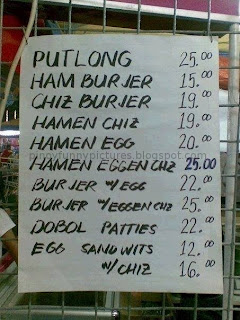 PUTLONG 25.00
HAM BURJER 15.00
CHIZ BURJER 19.00
HAMEN CHIZ 19.00
HAMEN EGG 20.00
pinoyfunnypictures.blogspot.com
HAMEN EGGEN CHZ 25.00
BURJER W/EGG 22.00
BURJER W/EGGEN CHIZ 25.00
DOBOL PATTIES 22.00
EGG SANDWITS 12.00
W/CHIZ 16.00